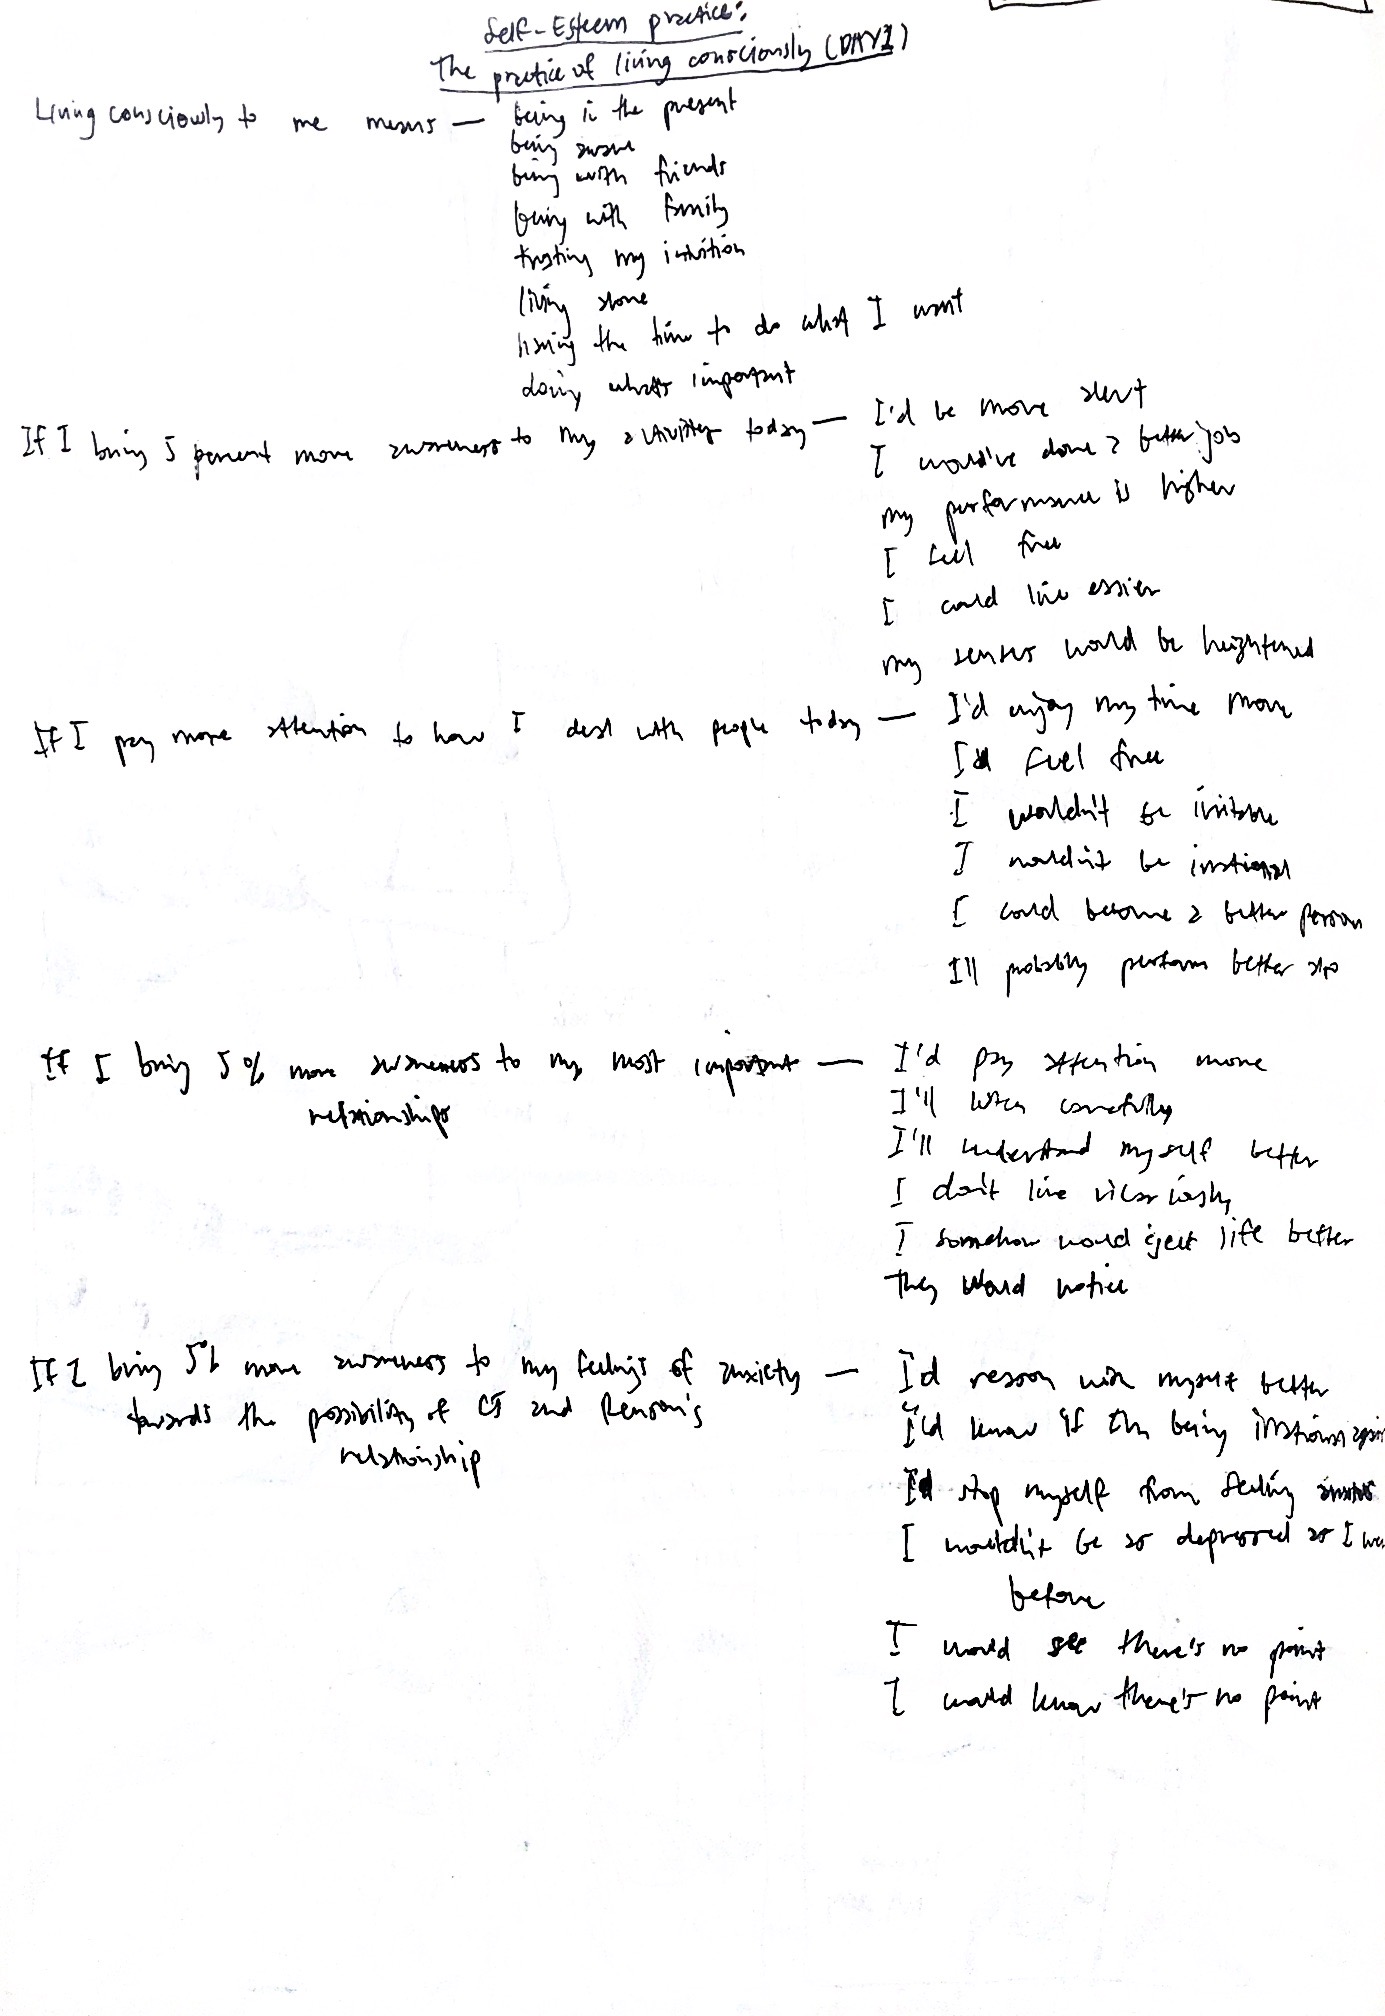 Self-Esteem practice:
The practice of living consciously (DAY 1)
Living consciously to me means — being in the present
being aware
being with friends
being with family
trusting my intuition
living alone
having the time to do what I want
doing what's important
If I bring 5 percent more awareness to my activities today — I'd be more alert
I would've done a better job
my performance is higher
I feel free
I could live easier
my senses would be heightened
If I pay more attention to how I deal with people today — I'd enjoy my time more
I'd feel free
I wouldn't be irritable
I wouldn't be irrational
I could become a better person
I'll probably perform better also
If I bring 5% more awareness to my most important — I'd pay attention more
relationships
I'll listen carefully
I'll understand myself better
I don't live vicariously
I somehow would life better
They would notice
If I bring 5% more awareness to my feelings of anxiety — I'd reason with myself better
towards the possibility of CJ and relationship
I'd know if I'm being irrational again
I'd stop myself from feeling anxious
I wouldn't be so depressed as I was
before
I would see there's no point
I would know there's no point